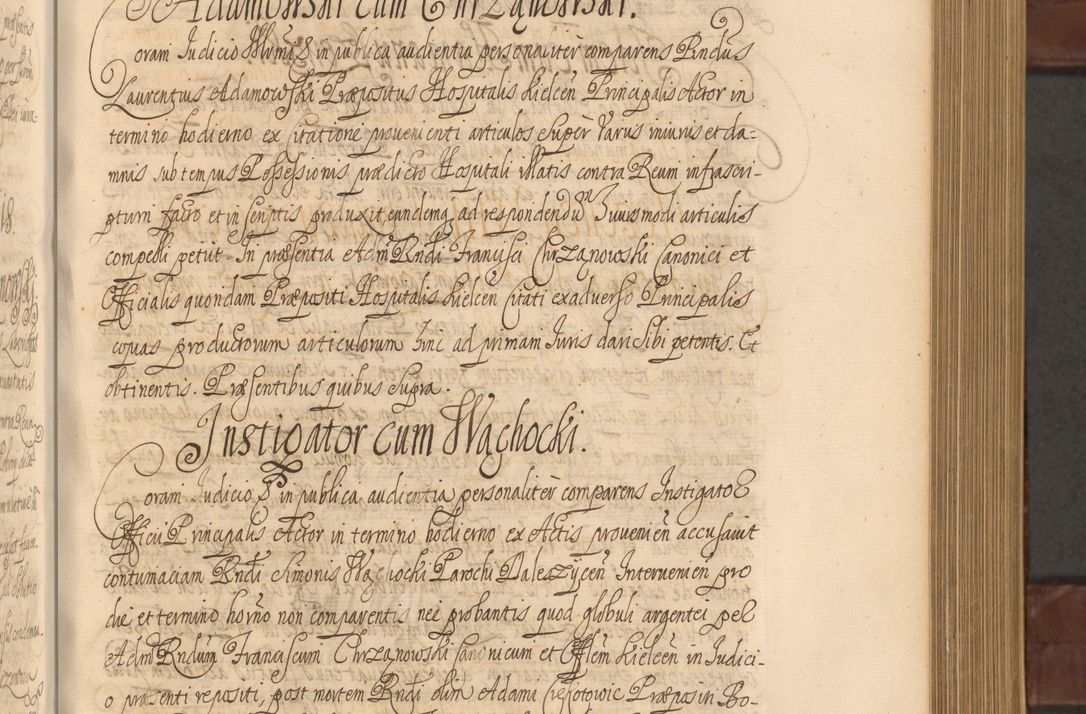 Adamowski cum Chrzanowski.
Coram Judicio in publica audientia personaliter comparens Rndus
Laurentius Adamowski Præpositus Hospitalis Kielcen Principalis Actor in
termino hodierno ex citatione provenienti articulos super varus iniuris et da-
mnis sub tempus Possessionis prædicto Hospitali illatis contra Reum infrascri-
ptum facto et in scriptis produxit, eundemq ad respondendū huiusmodi articulis
compelli petiit. In præsentia Adm Rndi Francisci Chrzanowski Canonici et
Officialis quondam Præpositi Hospitalis Kielcen Citati ex adverso Principalis
copias productorum articulorum hinc ad primam Iuris dari sibi petentis. Et
obtinentis. Præsentibus quibus supra.
Instigator cum Wąchocki.
Coram Judicio in publica audientia personaliter comparens Instigator
Officii Principalis Actor in termino hodierno ex Actis provenien accusavit
contumaciam Rndi Simonis Wąchocki Parochi Daleszycen Intervenien pro
die et termino horno non comparentis nec probantis quod globuli argentei per
Adm Rndum Franciscum Chrzanowski Canonicum et Offlem Kielcen in Judici-
o præsenti repositi, post mortem Rndi olim Adami Præpos in Bo-